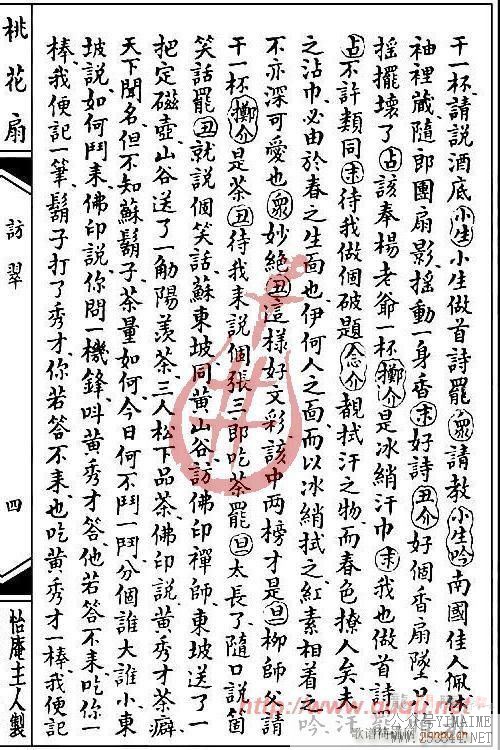 干一杯請說酒底小生小生做首詩罷衆請教小生吟南國佳人佩休
袖裡藏隨即團扇影搖動一身香末好詩丑介好個香扇墜
搖擺壞了占該奉楊老爺一杯擲介是冰綃汗巾末我也做首詩
占不許類同末待我做個破題念介覩拭汗之物而春色撩人矣夫
之沾巾必由於春之生面也伊何人之面而以冰綃拭之紅素相着之
不亦深可愛也衆妙絕丑這樣好文彩該中两榜才是旦柳師父請
干一杯擲介是茶丑待我来說個張三郎吃茶罷旦太長了隨口說箇
笑話罷丑就說個笑話蘇東坡同黃山谷訪佛印禪師東坡送了一
把定磁壺山谷送了一觔陽羨茶三人松下品茶佛印說黃秀才茶癖
天下聞名但不知蘇鬍子茶量如何今日何不鬥一鬥分個誰大誰小東
坡說如何鬥来佛印說你問一機鋒叫黃秀才答他若答不来吃你一
棒我便記一筆鬍子打了秀才你若答不来也吃黃秀才一棒我便記
桃花扇
訪翠
四
怡庵主人製
http://www.qupu.net
歌谱简谱网
jianpu.cn
公众号YIMAIME